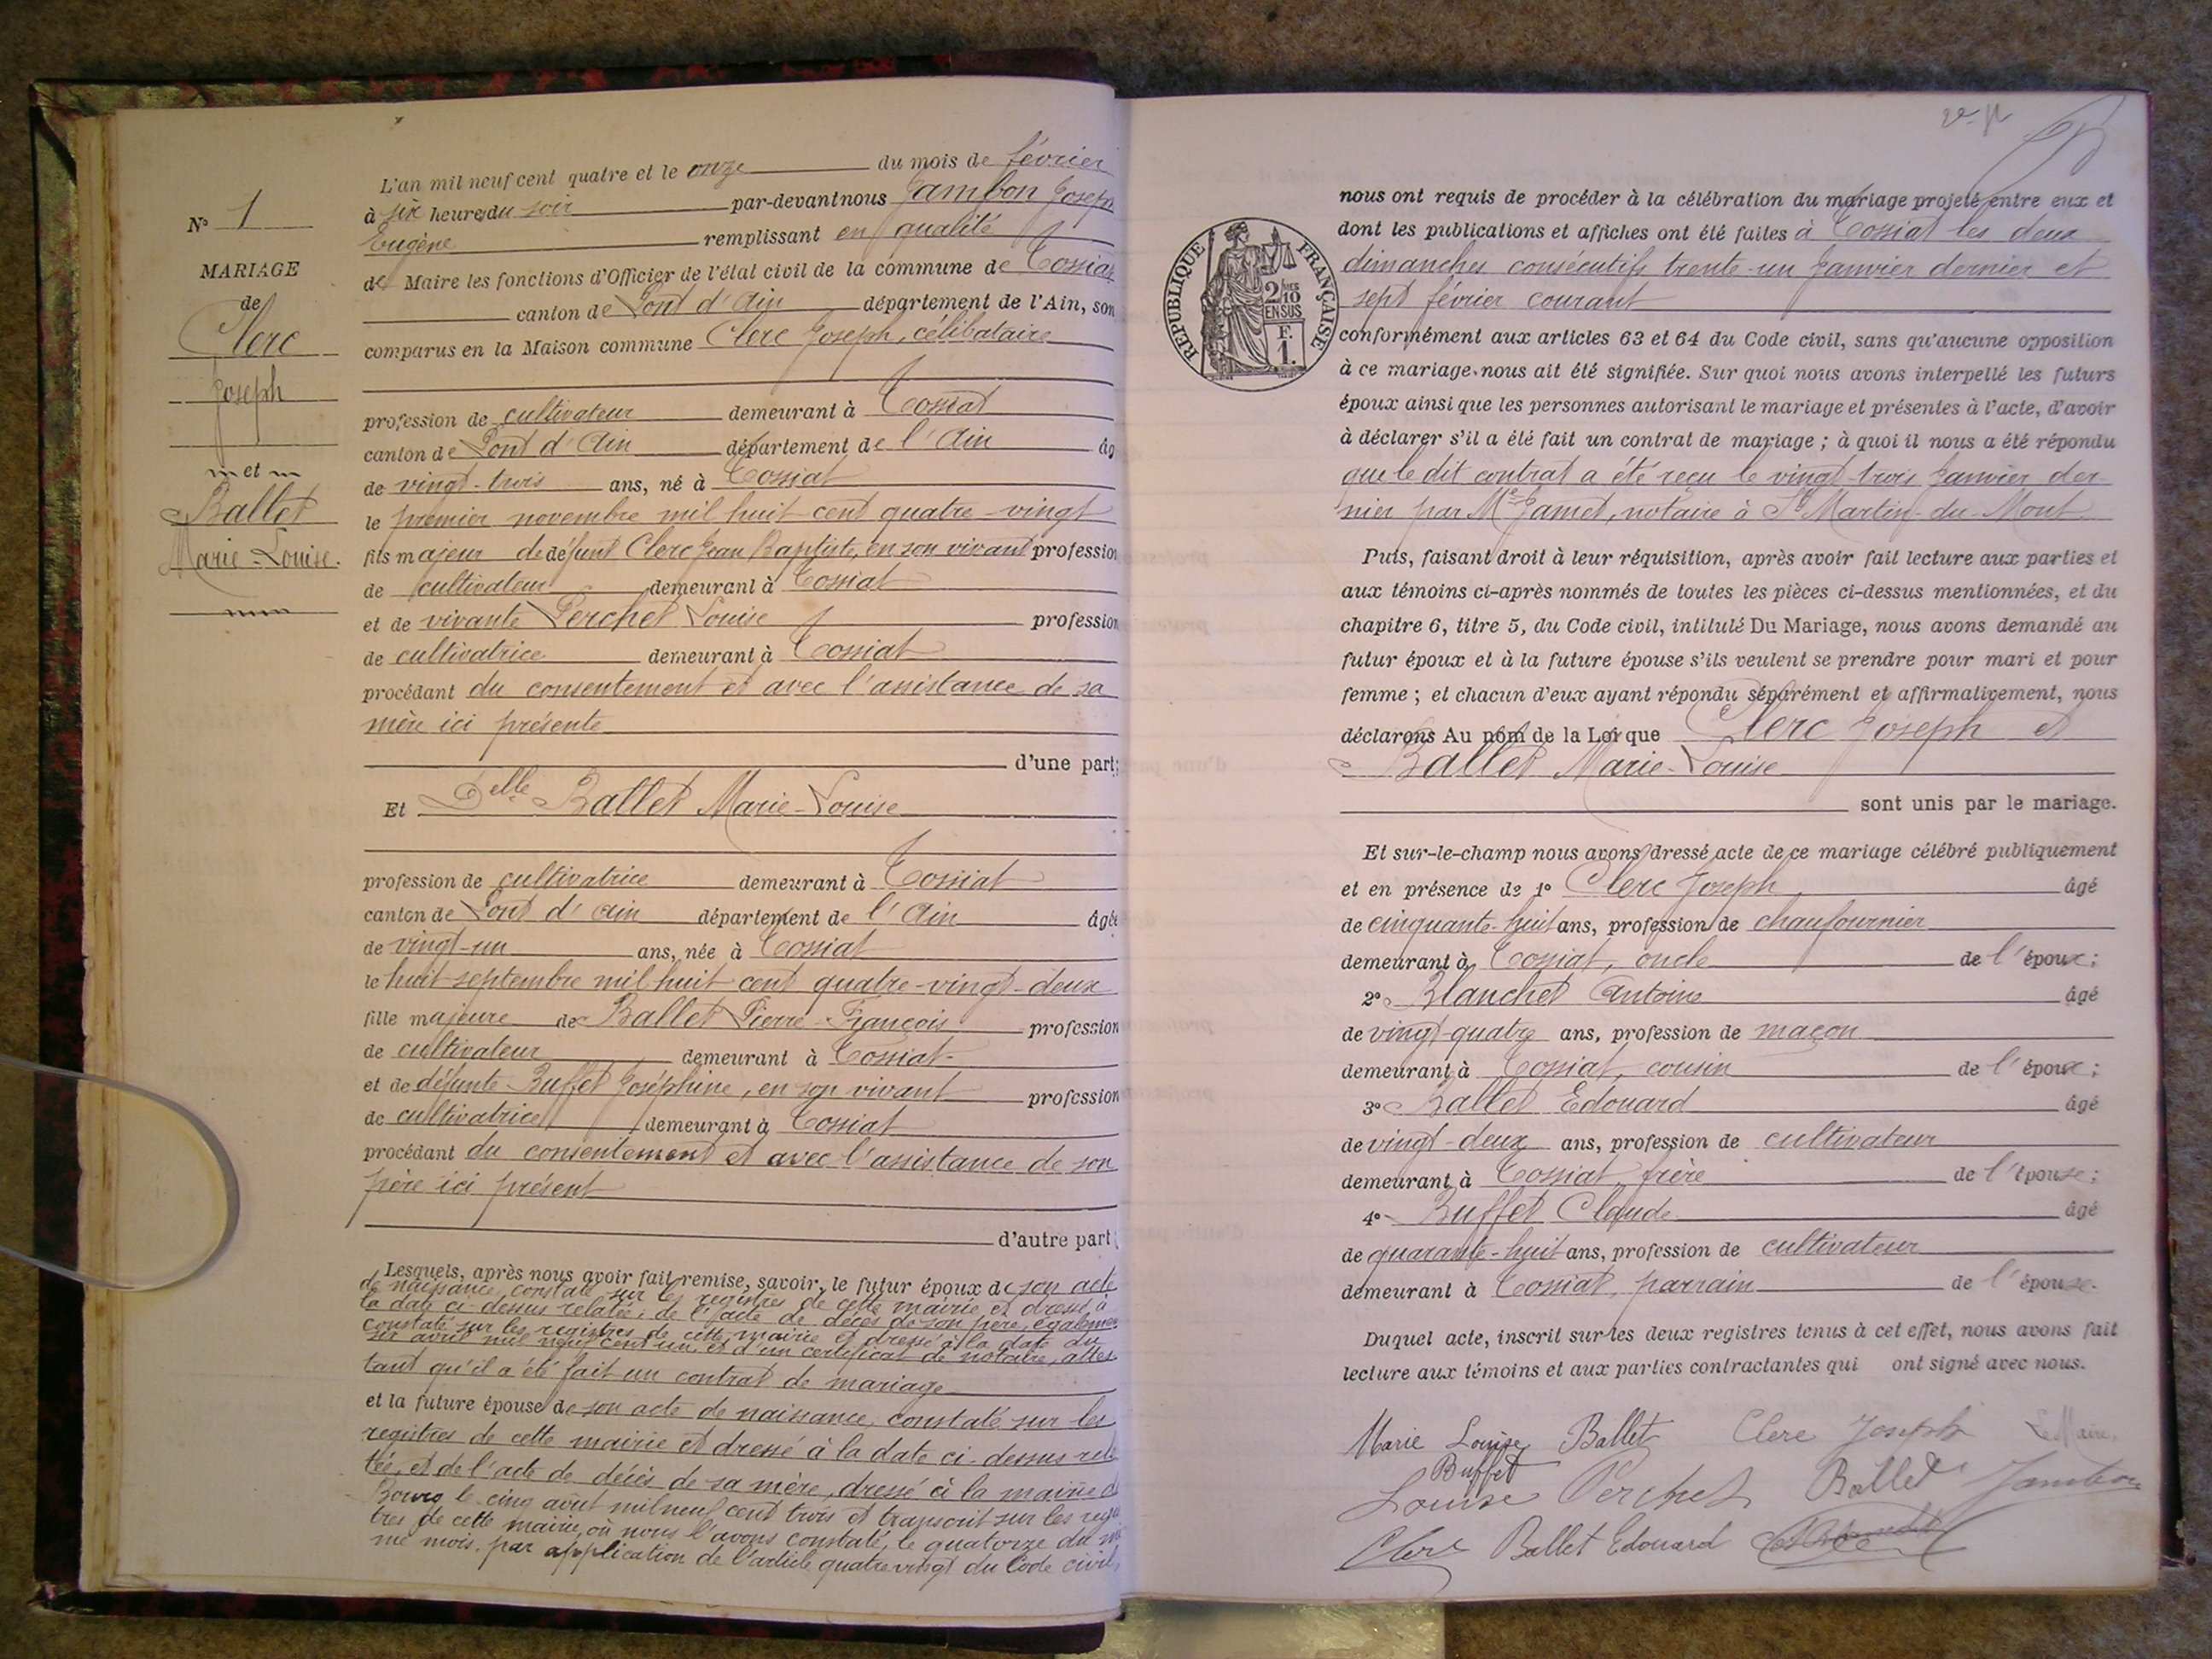 N° 1
MARIAGE
de
Clerc
Joseph
et
Ballet
Marie-Louise.
L'an mil neuf cent quatre et le onze du mois de février
à six heures du soir par-devant nous Jambon Joseph
Eugène remplissant en qualité
de Maire les fonctions d'Officier de l'état civil de la commune de Tossiat
canton de Pont d'Ain département de l'Ain, son
comparus en la Maison commune Clerc Joseph, célibataire
profession de cultivateur demeurant à Tossiat
canton de Pont d'Ain département de l'Ain âg
de vingt-trois ans, né à Tossiat
le premier novembre mil huit cent quatre-vingt
fils majeur de défunt Clerc Jean Baptiste, en son vivant profession
de cultivateur demeurant à Tossiat
et de vivante Perchet Louise profession
de cultivatrice demeurant à Tossiat
procédant du consentement et avec l'assistance de sa
mère ici présente
d'une part;
Et Delle Ballet Marie-Louise
profession de cultivatrice demeurant à Tossiat
canton de Pont d'Ain département de l'Ain âgée
de vingt-un ans, née à Tossiat
le huit septembre mil huit cent quatre-vingt-deux
fille majeure de Ballet Pierre-François profession
de cultivateur demeurant à Tossiat
et de défunte Buffet Joséphine, en son vivant profession
de cultivatrice demeurant à Tossiat
procédant du consentement et avec l'assistance de son
père ici présent
d'autre part
Lesquels, après nous avoir fait remise, savoir, le futur époux de son acte
de naissance, constaté sur les registres de cette mairie et dressé à
la date ci-dessus relatée; de l'acte de décès de son père, égaleme
constaté sur les registres de cette mairie et dressé à la date du
six avril mil neuf cent un, et d'un certificat de notaire, attes
tant qu'il a été fait un contrat de mariage
et la future épouse de son acte de naissance, constaté sur les
registres de cette mairie et dressé à la date ci-dessus rela
tée, et de l'acte de décès de sa mère, dressé à la mairie d
Bourg le cinq août mil neuf cent trois et transcrit sur les regis
tres de cette mairie, où nous l'avons constaté, le quatorze du mê
me mois, par application de l'article quatre vingt du Code civil,
nous ont requis de procéder à la célébration du mariage projeté entre eux et
dont les publications et affiches ont été faites à Tossiat les deux
dimanches consécutifs trente-un Janvier dernier et
sept février courant
RÉPUBLIQUE FRANÇAISE
2/10
EN SUS
F.
1.
conformément aux articles 63 et 64 du Code civil, sans qu'aucune opposition
à ce mariage nous ait été signifiée. Sur quoi nous avons interpellé les futurs
époux ainsi que les personnes autorisant le mariage et présentes à l'acte, d'avoir
à déclarer s'il a été fait un contrat de mariage; à quoi il nous a été répondu
que le dit contrat a été reçu le vingt-trois Janvier der-
nier par Me Jamet, notaire à St Martin-du-Mont
Puis, faisant droit à leur réquisition, après avoir fait lecture aux parties et
aux témoins ci-après nommés de toutes les pièces ci-dessus mentionnées, et du
chapitre 6, titre 5, du Code civil, intitulé Du Mariage, nous avons demandé au
futur époux et à la future épouse s'ils veulent se prendre pour mari et pour
femme; et chacun d'eux ayant répondu séparément et affirmativement, nous
déclarons Au nom de la Loi que Clerc Joseph et
Ballet Marie-Louise
sont unis par le mariage.
Et sur-le-champ nous avons dressé acte de ce mariage célébré publiquement
et en présence de 1° Clerc Joseph âgé
de cinquante-huit ans, profession de chaufournier
demeurant à Tossiat, oncle de l'époux;
2° Blanchet Antoine âgé
de vingt-quatre ans, profession de maçon
demeurant à Tossiat, cousin de l'époux;
3° Ballet Edouard âgé
de vingt-deux ans, profession de cultivateur
demeurant à Tossiat, frère de l'épouse;
4° Buffet Claude âgé
de quarante-huit ans, profession de cultivateur
demeurant à Tossiat, parrain de l'épouse.
Duquel acte, inscrit sur les deux registres tenus à cet effet, nous avons fait
lecture aux témoins et aux parties contractantes qui ont signé avec nous.
Marie Louise Ballet Clerc Joseph Le Maire,
Buffet
Louise Perchet Ballet Jambon
Clerc Ballet Edouard